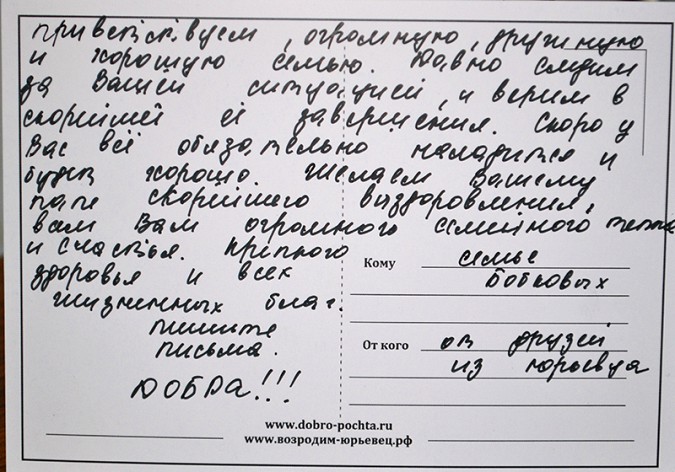 приветствуем, огромную, дружную
и хорошую семью. Давно следим
за Вашей ситуацией, и верим в
скорейшей её завершения. Скоро у
Вас всё обязательно наладится и
будет хорошо. Желаем Вашему
папе скорейшего выздоровления,
вам Вам огромного семейного тепла
и счастья. Крепкого
здоровья и всех
жизненных благ.
пишите
письма.
ДОБРА!!!
Кому семье
Бобковых
От кого от друзей
из юрьевца
www.dobro-pochta.ru
www.возродим-юрьевец.рф